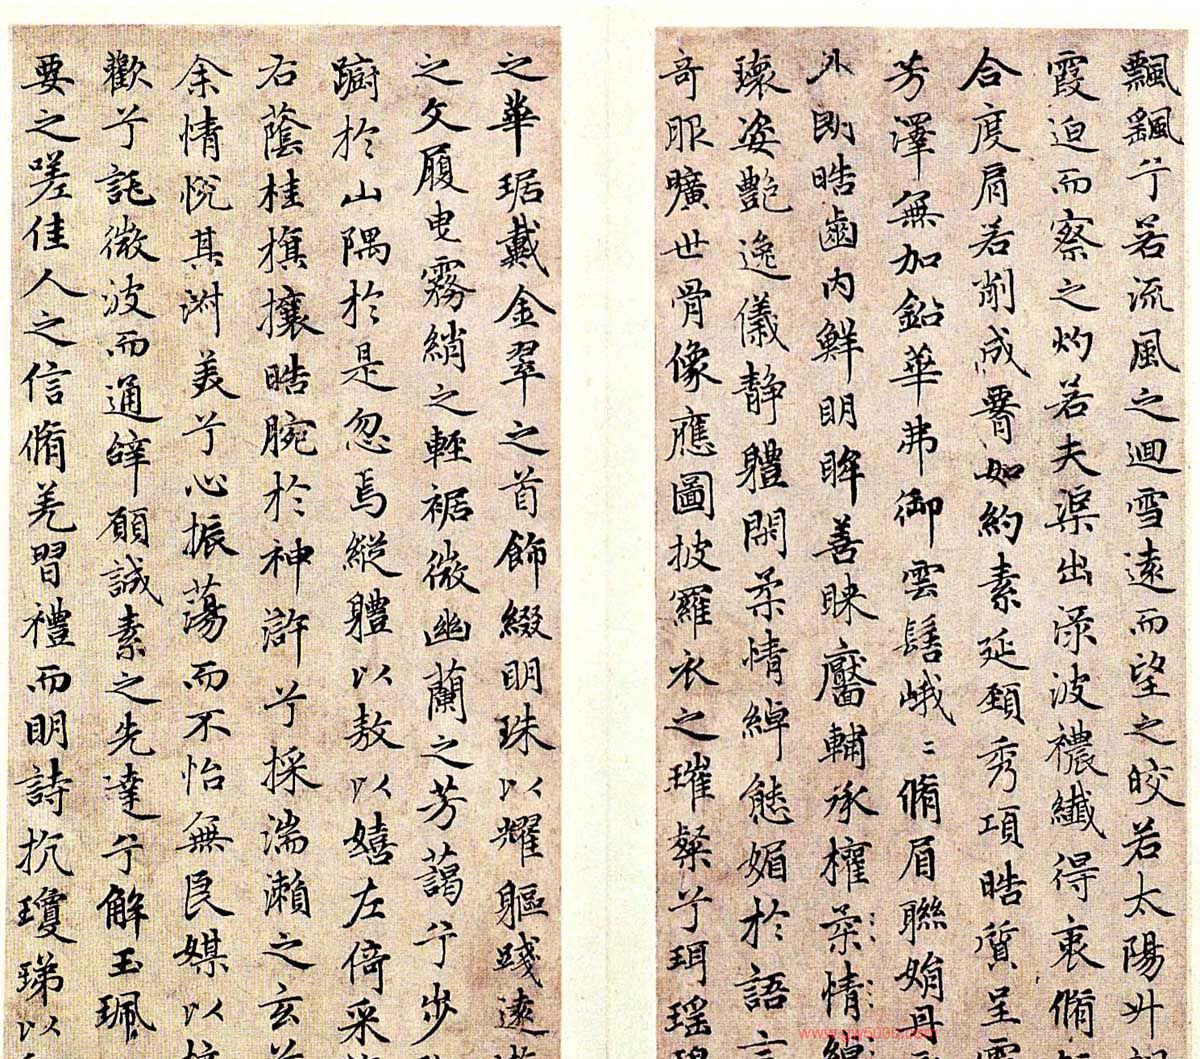 飄飖兮若流風之迴雪遠而望之皎若太陽升
霞迫而察之灼若夫渠出渌波襛纖得衷脩
合度肩若削成腰如約素延頸秀項皓質呈
芳澤無加鉛華弗御雲髻峨〻脩眉聯娟丹
外朗皓齒内鮮明眸善睞靨輔承權柔情綽
瓌姿艷逸儀静體閑柔情綽態媚於語言
奇服曠世骨像應圖披羅衣之璀粲兮珥瑶碧
之華琚戴金翠之首飾綴明珠以耀軀踐遠遊
之文履曳霧綃之輕裾微幽蘭之芳藹兮步
躕於山隅於是忽焉縱體以敖以嬉左倚采
右蔭桂旗攘皓腕於神滸兮採湍瀨之玄芝
余情悅其淑美兮心振蕩而不怡無良媒以接
歡兮託微波而通辭願誠素之先達兮解玉珮
要之嗟佳人之信脩羌習禮而明詩抗瓊珶以